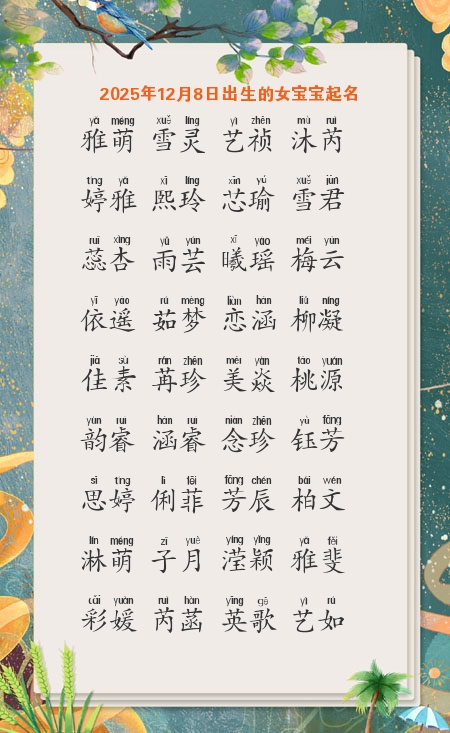 2025年12月8日出生的女宝宝起名
yǎ méng xuě líng yì zhēn mù ruì
雅萌 雪灵 艺祯 沐芮
tíng yǎ xī líng xīn yú xuě jūn
婷雅 熙玲 芯瑜 雪君
ruǐ xìng yǔ yún xī yáo méi yún
蕊杏 雨芸 曦瑶 梅云
yī yáo rú mèng liàn hán liǔ níng
依遥 茹梦 恋涵 柳凝
jiā sù rǎn zhēn měi yàn táo yuán
佳素 苒珍 美焱 桃源
yùn ruì hán ruì niàn zhēn yù fāng
韵睿 涵睿 念珍 钰芳
sī tíng lì fēi fāng chén bǎi wén
思婷 俐菲 芳辰 柏文
lín méng zǐ yuè yíng yǐng yǎ fěi
淋萌 子月 滢颖 雅斐
cǎi yuàn ruì hàn yīng gē yì rú
彩媛 芮菡 英歌 艺如